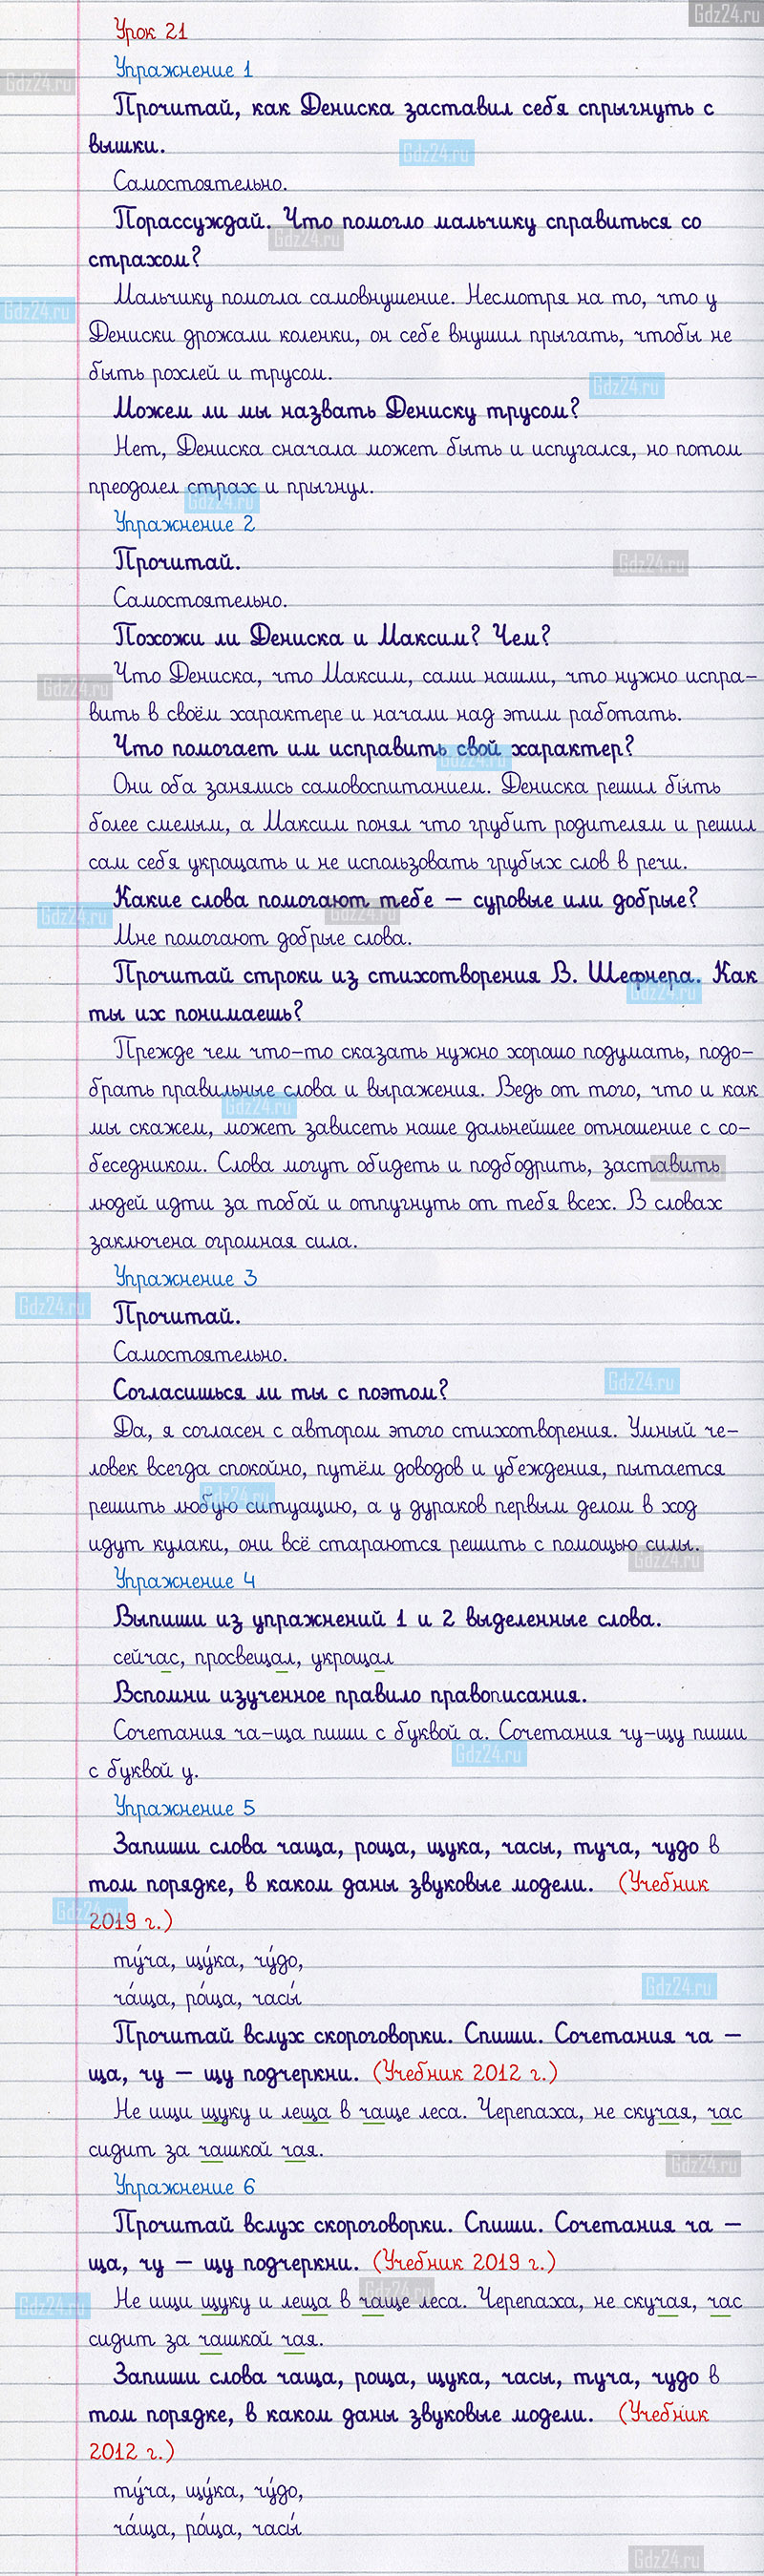 Gdz24.ru
Урок 21
Упражнение 1
Gdz24.ru
Прочитай, как Дениска заставил себя спрыгнуть с
вышки.
Gdz24.ru
Самостоятельно.
Порассуждай. Что помогло мальчику справиться со
Gdz24.ru
страхом?
Мальчику помогла самовнушение. Несмотря на то, что у
Gdz24.ru
Дениски дрожали коленки, он себе внушил прыгать, чтобы не
быть рохлей и трусом.
Gdz24.ru
Можем ли мы назвать Дениску трусом?
Нет, Дениска сначала может быть и испугался, но потом
преодолел страх и прыгнул.
Gdz24.ru
Упражнение 2
Прочитай.
Gdz24.ru
Самостоятельно.
Похожи ли Дениска и Максим? Чем?
Что Дениска, что Максим, сами нашли, что нужно испра-
Gdz24.ru
вить в своём характере и начали над этим работать.
Что помогает им исправить свой характер?
Gdz24.ru
Они оба занялись самовоспитанием. Дениска решил быть
более смелым, а Максим понял что грубит родителям и решил
сам себя укрощать и не использовать грубых слов в речи.
Какие слова помогают тебе – суровые или добрые?
Gdz24.ru
Gdz24.ru
Мне помогают добрые слова.
Прочитай строки из стихотворения В. Шефнера. Как
Gdz24.ru
ты их понимаешь?
Прежде чем что-то сказать нужно хорошо подумать, подо-
брать правильные слова и выражения. Ведь от того, что и как
Gdz24.ru
мы скажем, может зависеть наше дальнейшее отношение с со-
беседником. Слова могут обидеть и подбодрить, заставить
Gdz24.ru
людей идти за тобой и отпугнуть от тебя всех. В словах
заключена огромная сила.
Упражнение 3
Gdz24.ru
Прочитай.
Самостоятельно.
Gdz24.ru
Согласишься ли ты с поэтом?
Да, я согласен с автором этого стихотворения. Умный че-
ловек всегда спокойно, путём доводов и убеждения, пытается
Gdz24.ru
решить любую ситуацию, а у дураков первым делом в ход
идут кулаки, они всё стараются решить с помощью силы.
Gdz24.ru
Упражнение 4
Выпиши из упражнений 1 и 2 выделенные слова.
сейчас, просвещал, укрощал
Вспомни изученное правило правописания.
Сочетания ча-ща пиши с буквой а. Сочетания чу-щу пиши
Gdz24.ru
с буквой у.
Упражнение 5
Запиши слова чаща, роща, щука, часы, туча, чудо в
том порядке, в каком даны звуковые модели. (Учебник
Gdz24.ru
2019 г.)
ту́ча, щу́ка, чу́до,
Gdz24.ru
ча́ща, ро́ща, часы́
Прочитай вслух скороговорки. Спиши. Сочетания ча –
ща, чу – щу подчеркни. (Учебник 2012 г.)
Не ищи щуку и леща в чаще леса. Черепаха, не скучая, час
сидит за чашкой чая.
Gdz24.ru
Упражнение 6
Прочитай вслух скороговорки. Спиши. Сочетания ча –
ща, чу – щу подчеркни. (Учебник 2019 г.)
Gdz24.ru
Не ищи щуку и леща в чаще леса. Черепаха, не скучая, час
Gdz24.ru
сидит за чашкой чая.
Запиши слова чаща, роща, щука, часы, туча, чудо в
том порядке, в каком даны звуковые модели. (Учебник
2012 г.)
ту́ча, щу́ка, чу́до,
ча́ща, ро́ща, часы́
Gdz24.ru